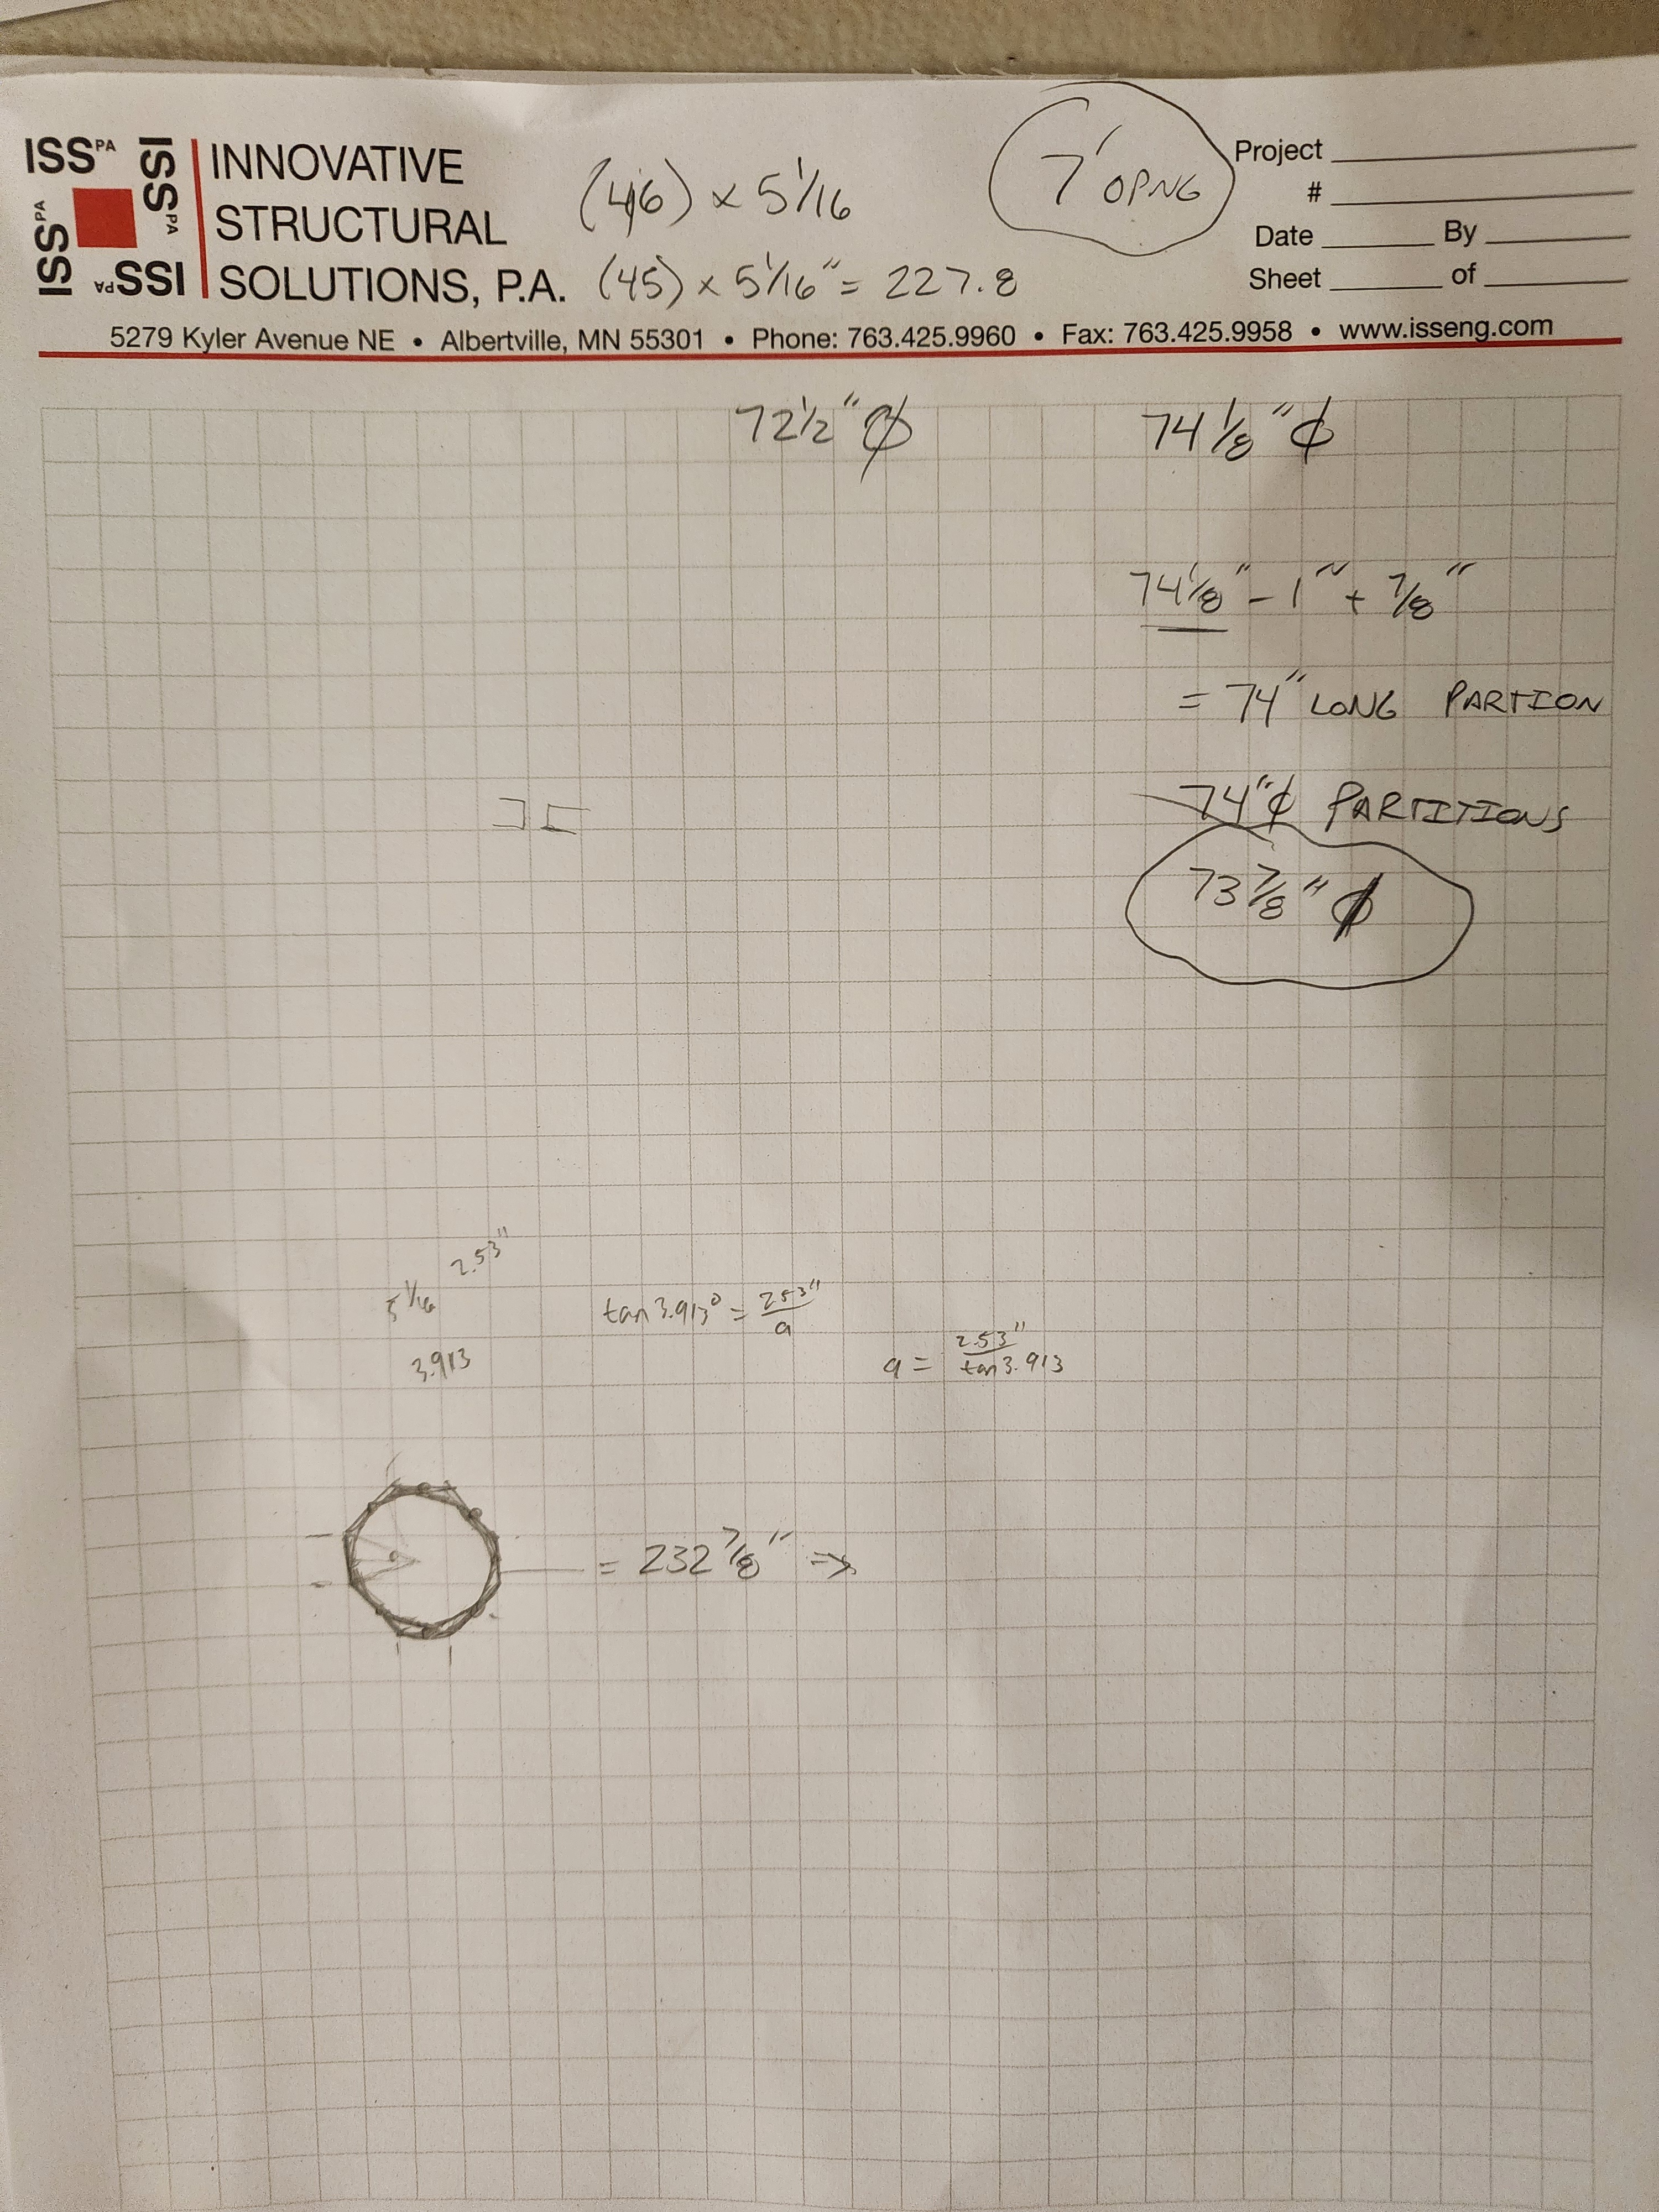 ISS PA
ISS PA
ISS PA
ISS PA
INNOVATIVE
STRUCTURAL
SOLUTIONS, P.A.
(46) x 5 1/16
(45) x 5 1/16" = 227.8
7' OPNG
Project
#
Date By
Sheet of
5279 Kyler Avenue NE • Albertville, MN 55301 • Phone: 763.425.9960 • Fax: 763.425.9958 • www.isseng.com
72 1/2" ϕ 74 1/8" ϕ
74 1/8" - 1" + 7/8"
= 74" LONG PARTION
74" ϕ PARTITIONS
73 7/8" ϕ
2.53"
5 1/16
3.913
tan 3.913° = 2.53"/a
a = 2.53"/tan 3.913
= 232 7/8" ⇒